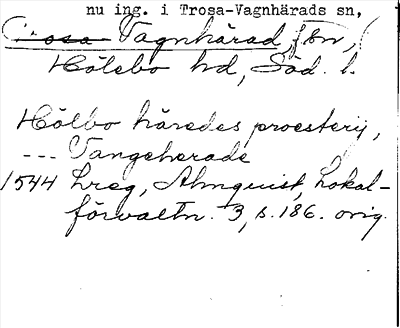 nu ing. i Trosa-Vagnhärads sn,
Trosa-Vagnhärad, fsn,
Hölebo hd, Söd. l.
Hölbo häredes proesterij,
--- Vangeherade
1544 Lreg, Almquist, Lokal-
förvaltn. 3, s. 186. orig.